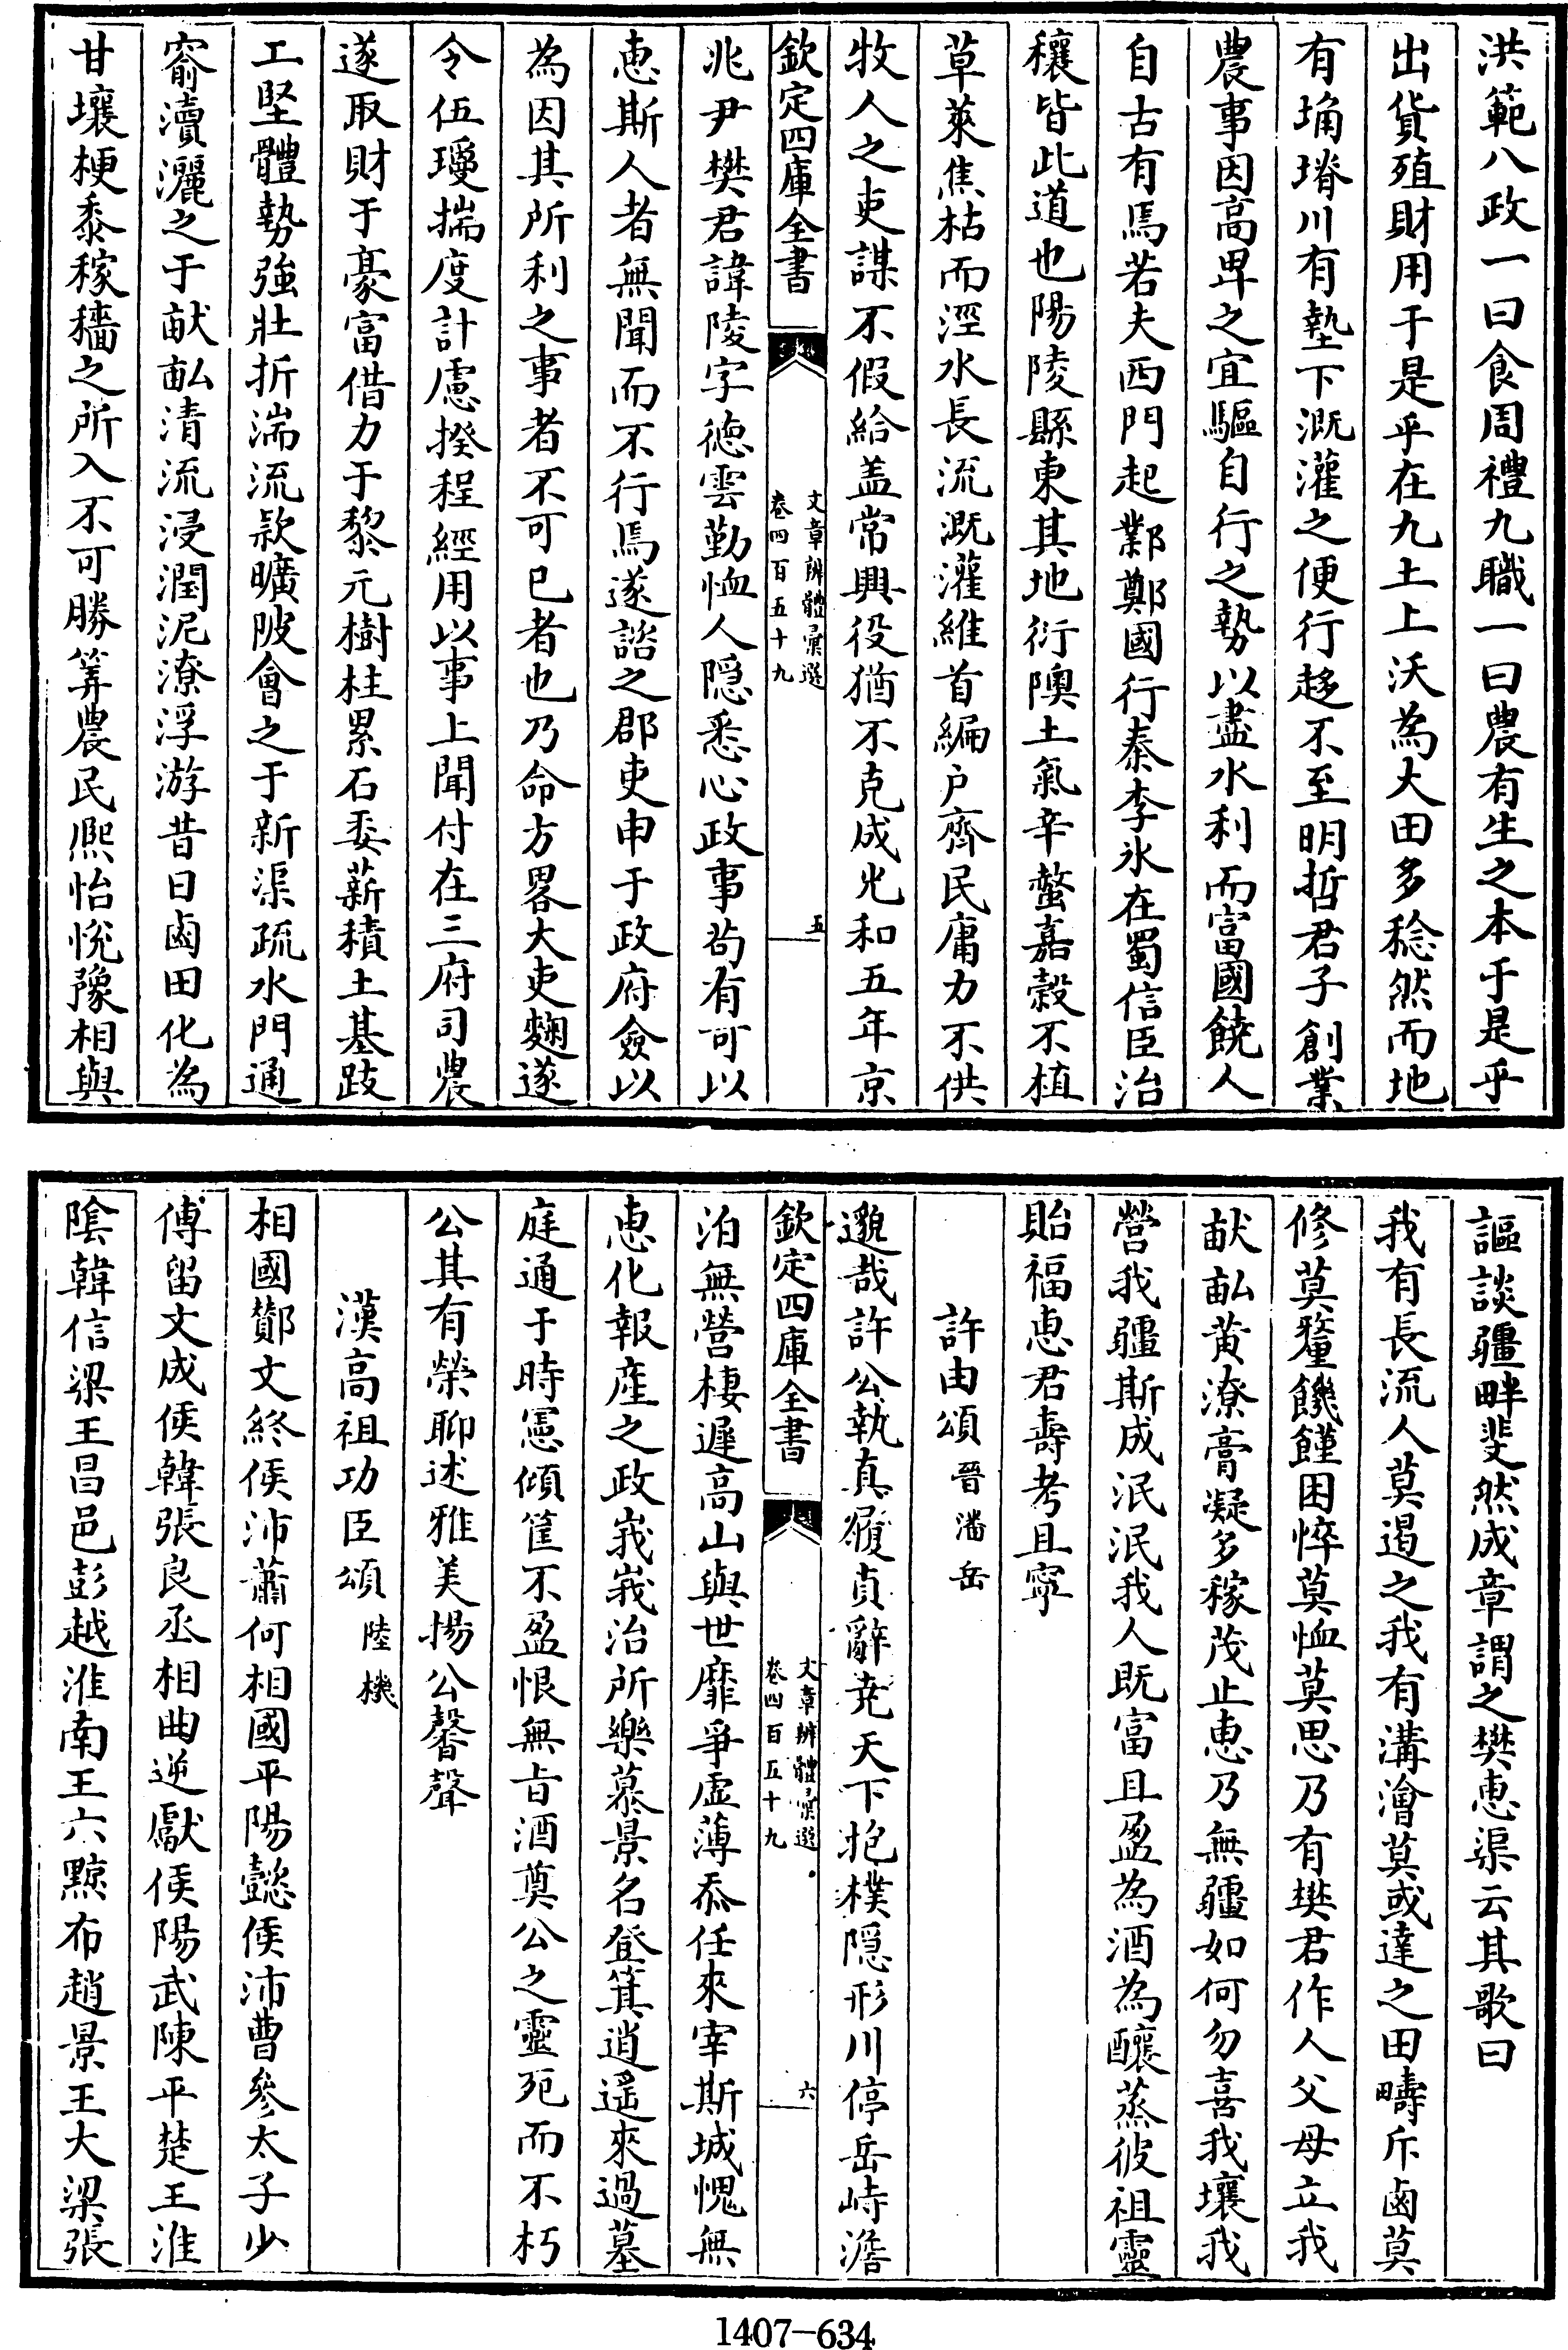 洪範八政一曰食周禮九職一曰農有生之本于是乎
出貨殖財用于是乎在九土上沃為大田多稔然而地
有埆塉川有墊下溉灌之便行趍不至明哲君子創業
農事因高卑之宜驅自行之勢以盡水利而富國饒人
自古有焉若夫西門起鄴鄭國行秦李氷在蜀信臣治
穰皆此道也陽陵縣東其地衍隩土氣辛螫嘉穀不植
草萊焦枯而涇水長流溉灌維首編户齊民庸力不供
牧人之吏謀不假給盖常興役猶不克成光和五年京
欽定四庫全書
文章辨體彙選
卷四百五十九
五
兆尹樊君諱陵字徳雲勤恤人隠悉心政事茍有可以
恵斯人者無聞而不行焉遂諮之郡吏申于政府僉以
為因其所利之事者不可已者也乃命方畧大吏麴遂
令伍瓊揣度計慮揆程經用以事上聞付在三府司農
遂取財于豪富借力于黎元樹柱累石委薪積土基跂
工堅體勢強壯折湍流欵曠陂會之于新渠疏水門通
窬瀆灑之于畎畝清流浸潤泥潦浮游昔日鹵田化為
甘壤梗黍稼穡之所入不可勝筭農民熈怡悅豫相與
謳談疆畔斐然成章謂之樊恵渠云其歌曰
我有長流人莫遏之我有溝澮莫或達之田疇斥鹵莫
修莫釐饑饉困悴莫恤莫思乃有樊君作人父母立我
畎畝黄潦膏凝多稼茂止恵乃無疆如何勿喜我壤我
營我疆斯成泯泯我人既富且盈為酒為釀蒸彼祖靈
貽福恵君壽考且寧
許由頌 晉潘岳
邈哉許公執真履貞辭堯天下抱樸隠形川停岳峙澹
欽定四庫全書
文章辨體彙選
卷四百五十九
六
泊無營棲遲高山與世靡爭虚薄忝任來宰斯城愧無
恵化報産之政峩峩治所樂慕景名登箕逍遙來過墓
庭通于時憲傾筐不盈恨無㫖酒奠公之靈死而不朽
公其有榮聊述雅美揚公馨聲
漢高祖功臣頌 陸機
相國酇文終侯沛蕭何相國平陽懿侯沛曹參太子少
傅留文成侯韓張良丞相曲逆獻侯陽武陳平楚王淮
隂韓信梁王昌邑彭越淮南王六黥布趙景王大梁張
1407-634